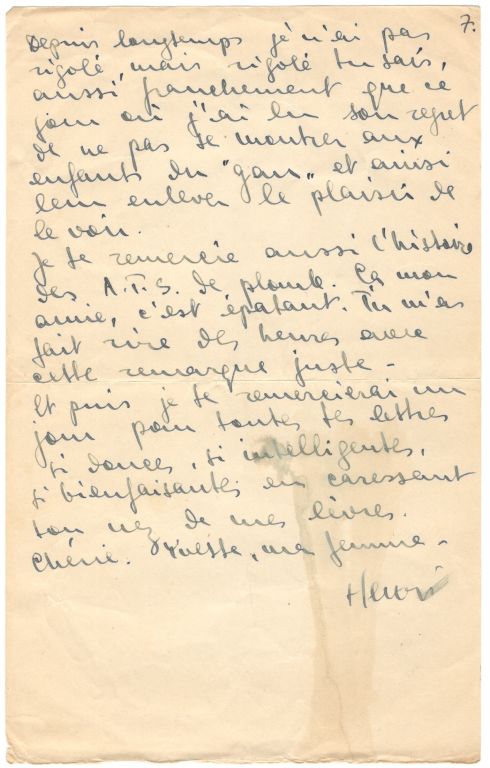 7.
Depuis longtemps je n'ai pas
rigolé, mais rigolé tu sais,
aussi franchement que ce
jour où j'ai lu son regret
de ne pas se montrer aux
enfants du "gan" et ainsi
leur enlever le plaisir de
le voir.
Je te remercie aussi l'histoire
des A.T.S. de plomb. Ça mon
amie, c'est épatant. Tu m'as
fait rire des heures avec
cette remarque juste -
Et puis je te remercierai un
jour pour toutes tes lettres
si douces, si intelligentes,
si bienfaisantes en caressant
ton nez de mes lèvres.
Chérie. ma femme -
Henri